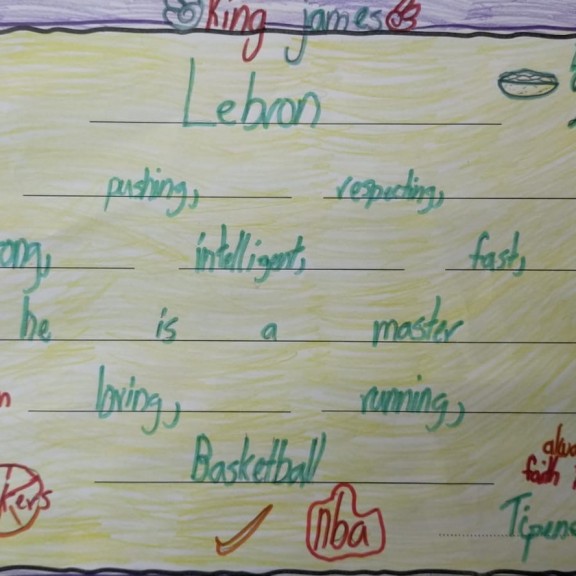 King james
Lebron
pushing, respecting,
ong, intelligent, fast,
he is a master
loving, running,
Basketball
kers
nba
faith
Tipene